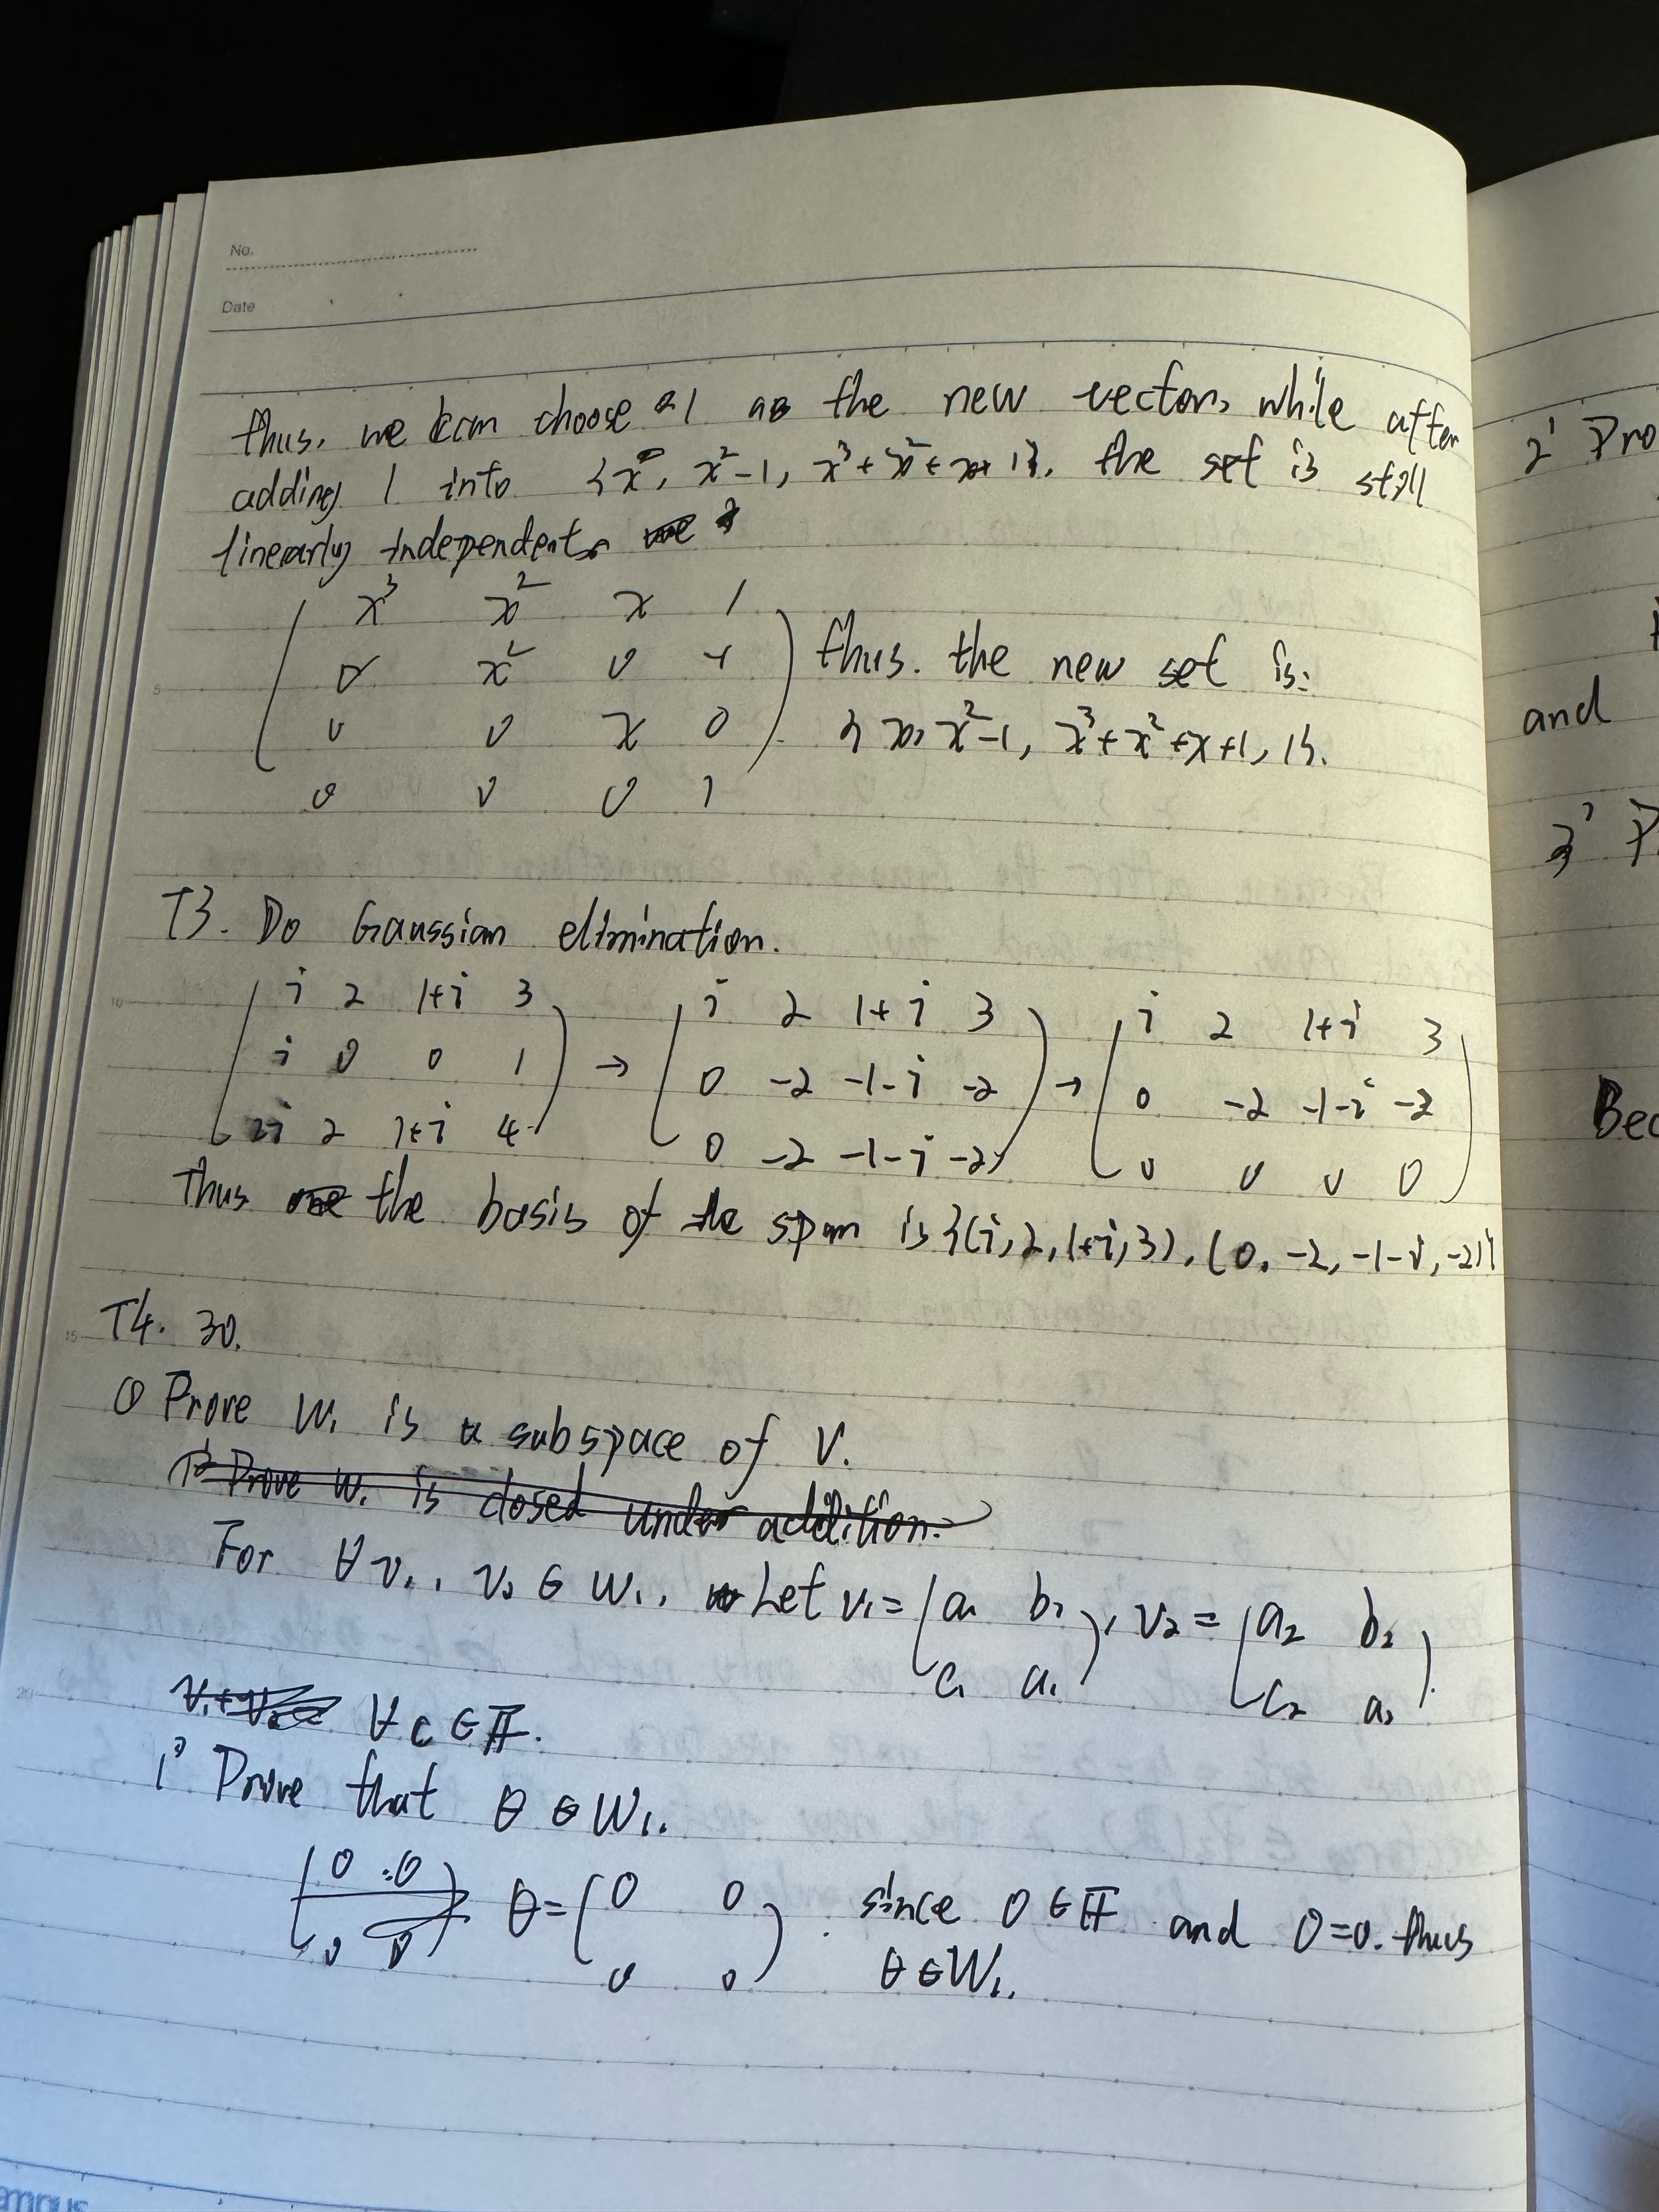 No.
Date
thus, we can choose 1 as the new vector, while after
adding 1 into {x, x²-1, x³+x²+x+1}, the set is still
linearly independent.
x³ x² x 1
0 x² 0 -1
0 0 x 0
0 0 0 1
thus. the new set is:
{x, x²-1, x³+x²+x+1, 1}.
T3. Do Gaussian elimination.
( i 2 1+i 3 ) → ( i 2 1+i 3 ) → ( i 2 1+i 3 )
( i 0 0 1 ) ( 0 -2 -1-i -2 ) ( 0 -2 -1-i -2 )
( 2i 2 1+i 4 ) ( 0 -2 -1-i -2 ) ( 0 0 0 0 )
Thus the basis of the span is {(i, 2, 1+i, 3), (0, -2, -1-i, -2)}
T4. 30.
① Prove W₁ is a subspace of V.
1° Prove W₁ is closed under addition.
For ∀ v₁, v₂ ∈ W₁, Let v₁ = ( a₁ b₁ ), v₂ = ( a₂ b₂ )
( c₁ a₁ ) ( c₂ a₂ ).
v₁+v₂= ∀ c ∈ 𝔽.
1° Prove that θ ∈ W₁.
( 0 0 ) θ = ( 0 0 ). since 0 ∈ 𝔽 and 0=0. thus
( 0 0 ) ( 0 0 ) θ ∈ W₁.
2' Pro
and
3' P
Bec
5
10
15
20
ampus